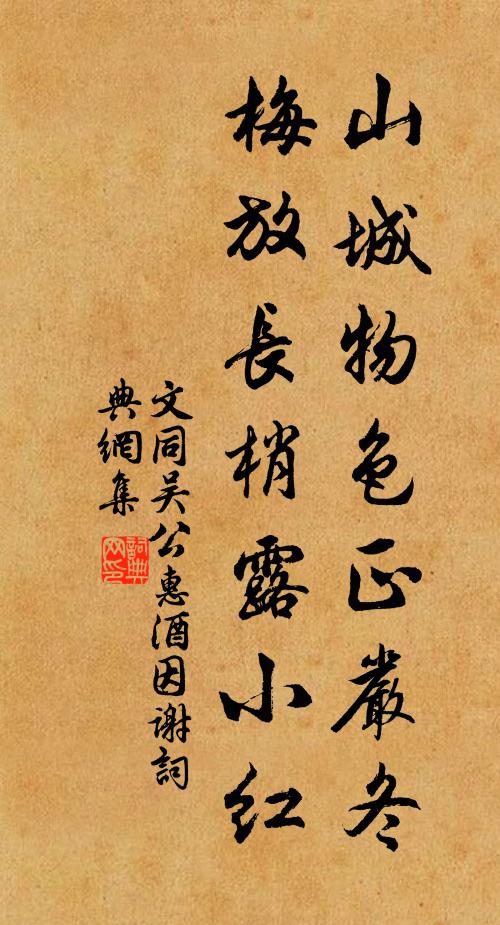 山城物色正嚴冬
梅放長梢露小红
文同吴公惠酒因谢詞
典網集
詞典
网印